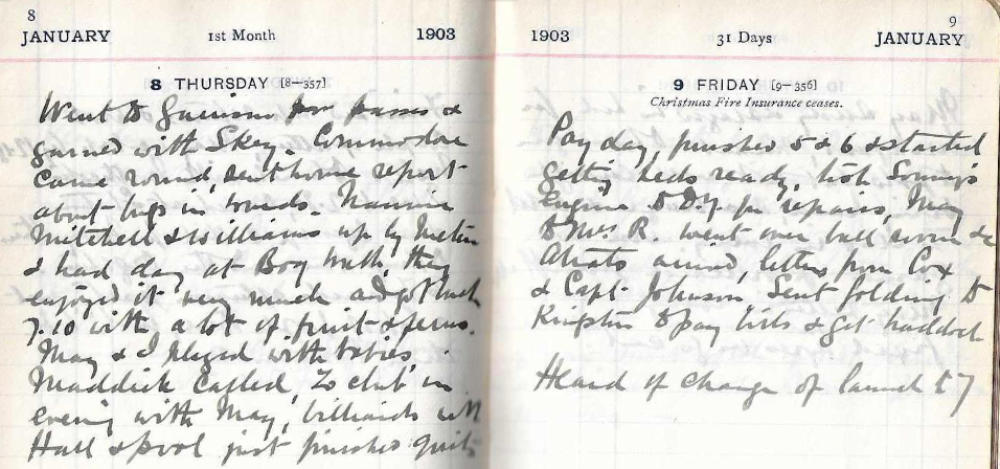 8
JANUARY 1st Month 1903
8 THURSDAY [8—357]
Went to for passes &
garned with Skey. Commodore
came round, sent home report
about bugs in
Mitchell & Williams up by
& had day at Bog Walk, they
enjoyed it very much and got back
7.10 with a lot of fruit & ferns.
May & I played with babies
Maddick called, to club in
evening with May, billiards with
Hall & pool just finished
1903 31 Days 9
JANUARY
9 FRIDAY [9—356]
Christmas Fire Insurance ceases.
Pay day, finished 5 & 6 & started
getting beds ready, took Sonny's
Engine to D.Y. for repairs, May
& Mrs R. went over ball room &c
Atrato arrived, letters from Cox
& Capt Johnson, Sent Golding to
Kingston to pay bills & get haddock
Heard of change of launch to 7